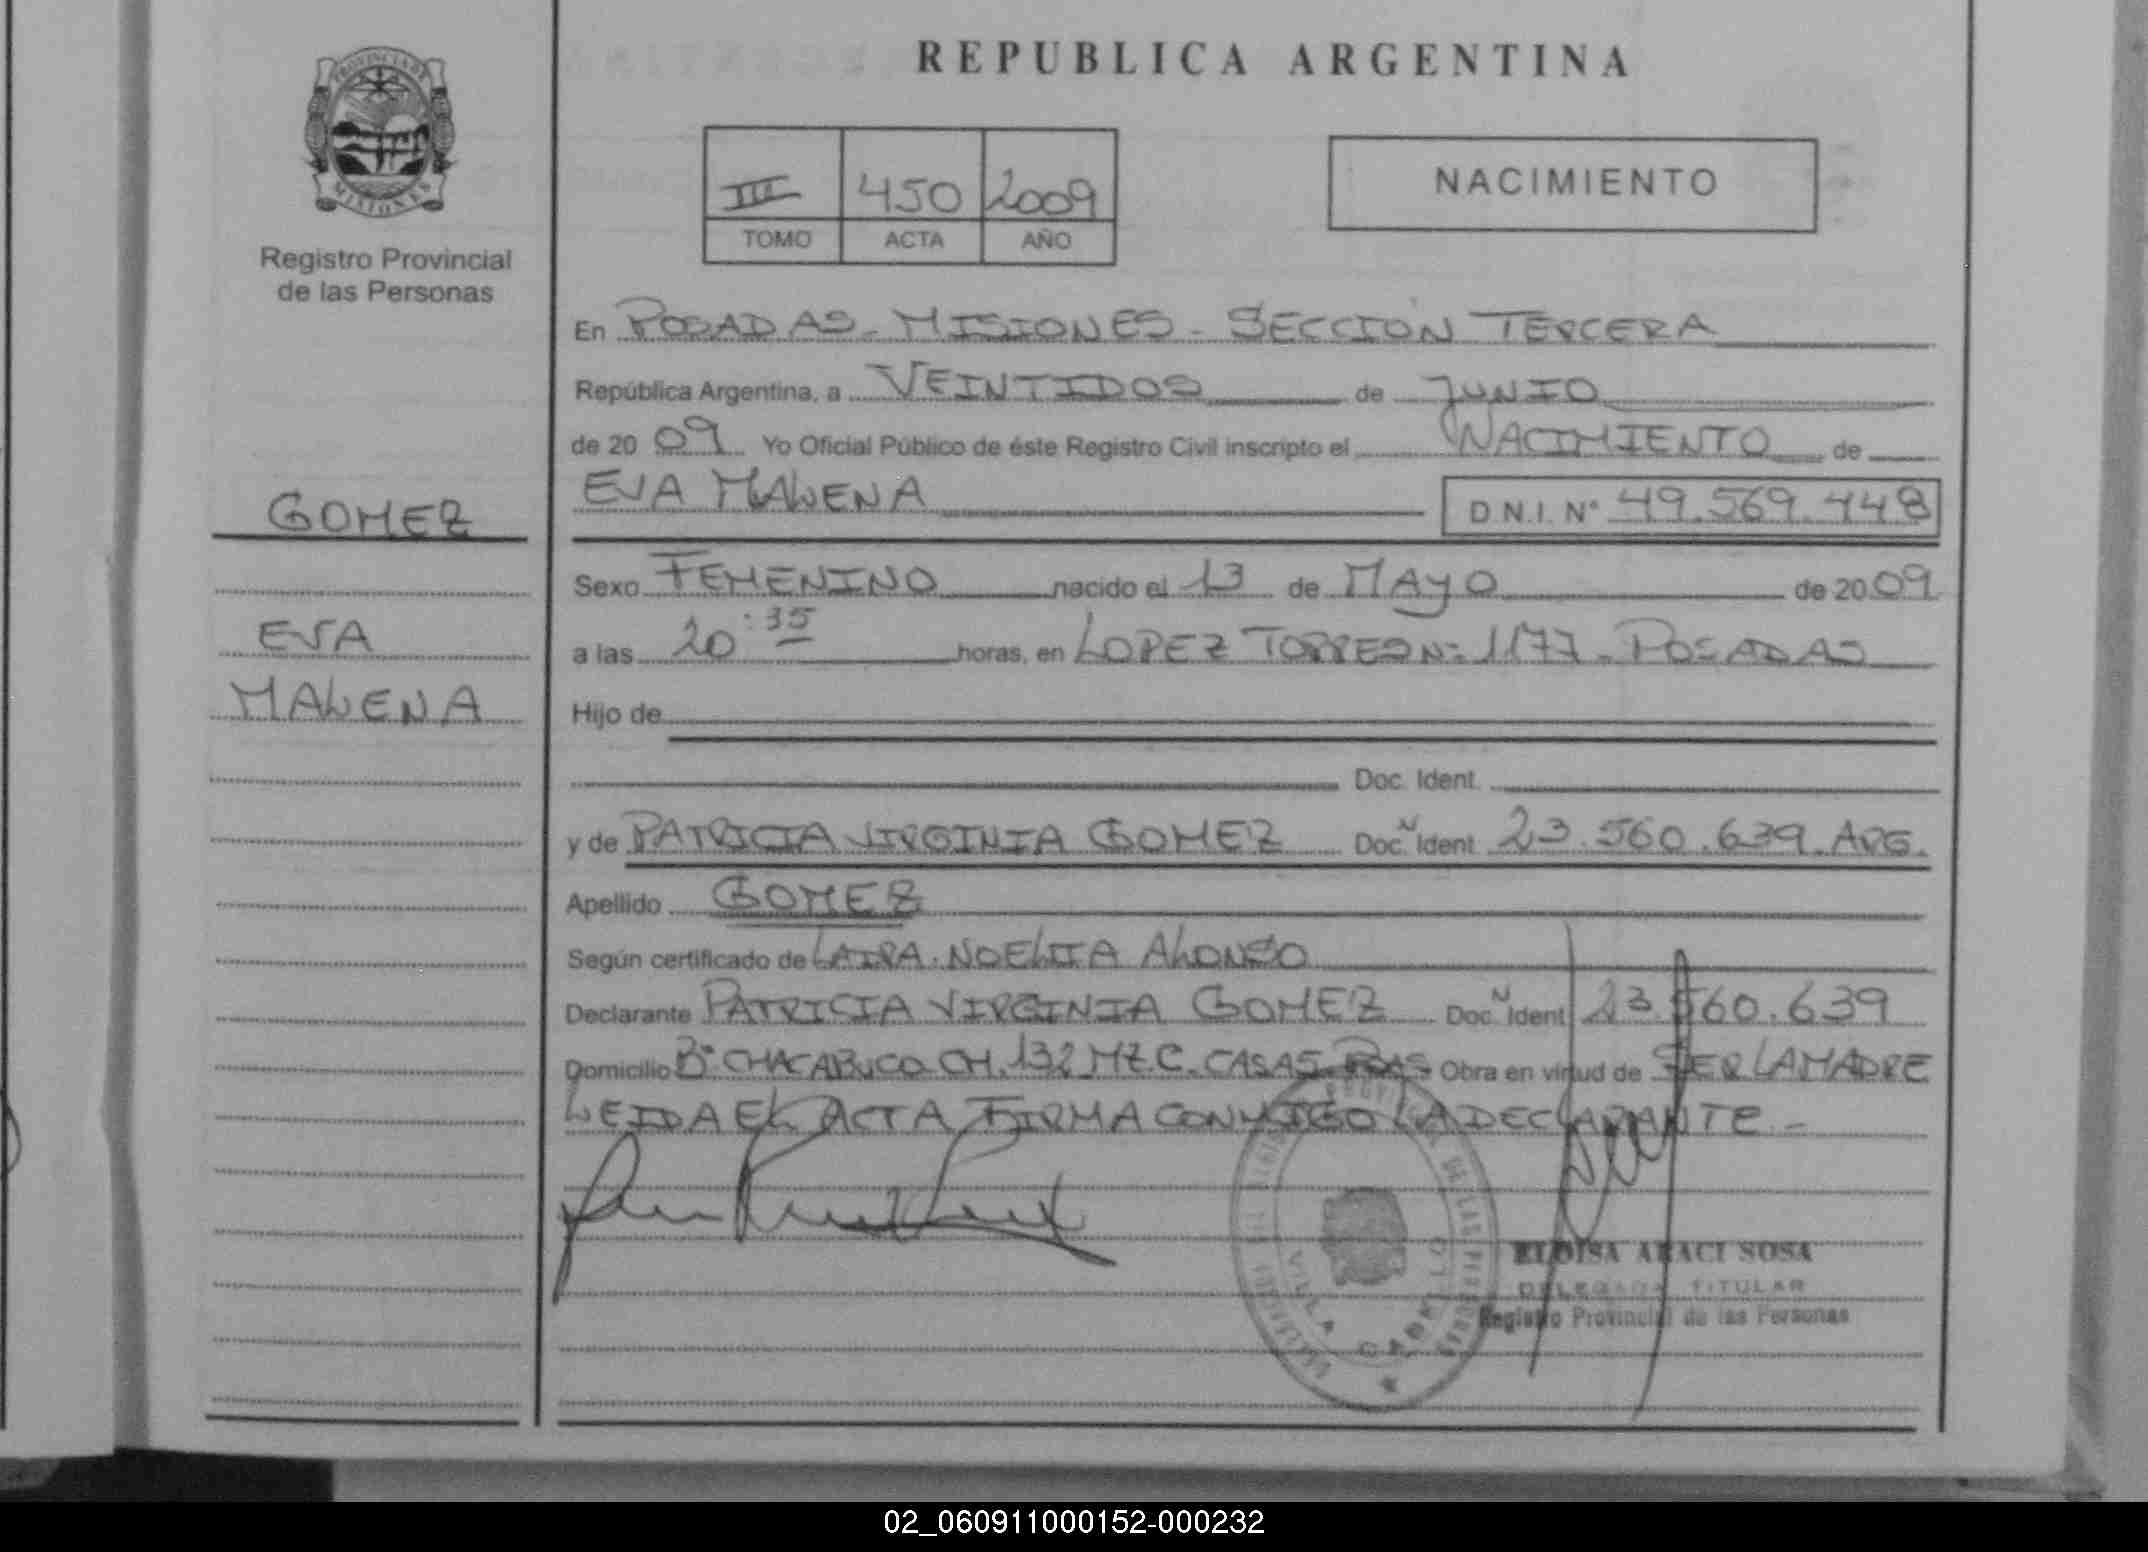 PROVINCIA DE
MISIONES
Registro Provincial
de las Personas
GOMEZ
EVA
MALENA
REPUBLICA ARGENTINA
III 450 2009
TOMO ACTA AÑO
NACIMIENTO
En POSADAS - MISIONES - SECCIÓN TERCERA
República Argentina, a VEINTIDOS de JUNIO
de 2009 Yo Oficial Público de éste Registro Civil inscripto el NACIMIENTO de
EVA MALENA D.N.I. N° 49.569.448
Sexo FEMENINO nacido el 13 de MAYO de 2009
a las 20:35 horas, en LOPEZ TORRES Nº 1177 - POSADAS
Hijo de
Doc. Ident.
y de PATRICIA VIRGINIA GOMEZ Doc. N Ident 23.560.639. ARG.
Apellido GOMEZ
Según certificado de LAURA NOELIA ALONSO
Declarante PATRICIA VIRGINIA GOMEZ Doc. N Ident 23.560.639
Domicilio Bº CHACABUCO CH. 132 MZ C. CASA 5 Obra en virtud de SER LA MADRE
LEIDA EL ACTA FIRMA CONMIGO LA DECLARANTE -
ELOISA ARACI SOSA
DELEGADA TITULAR
Registro Provincial de las Personas
VILLA CABELLO
02_060911000152-000232